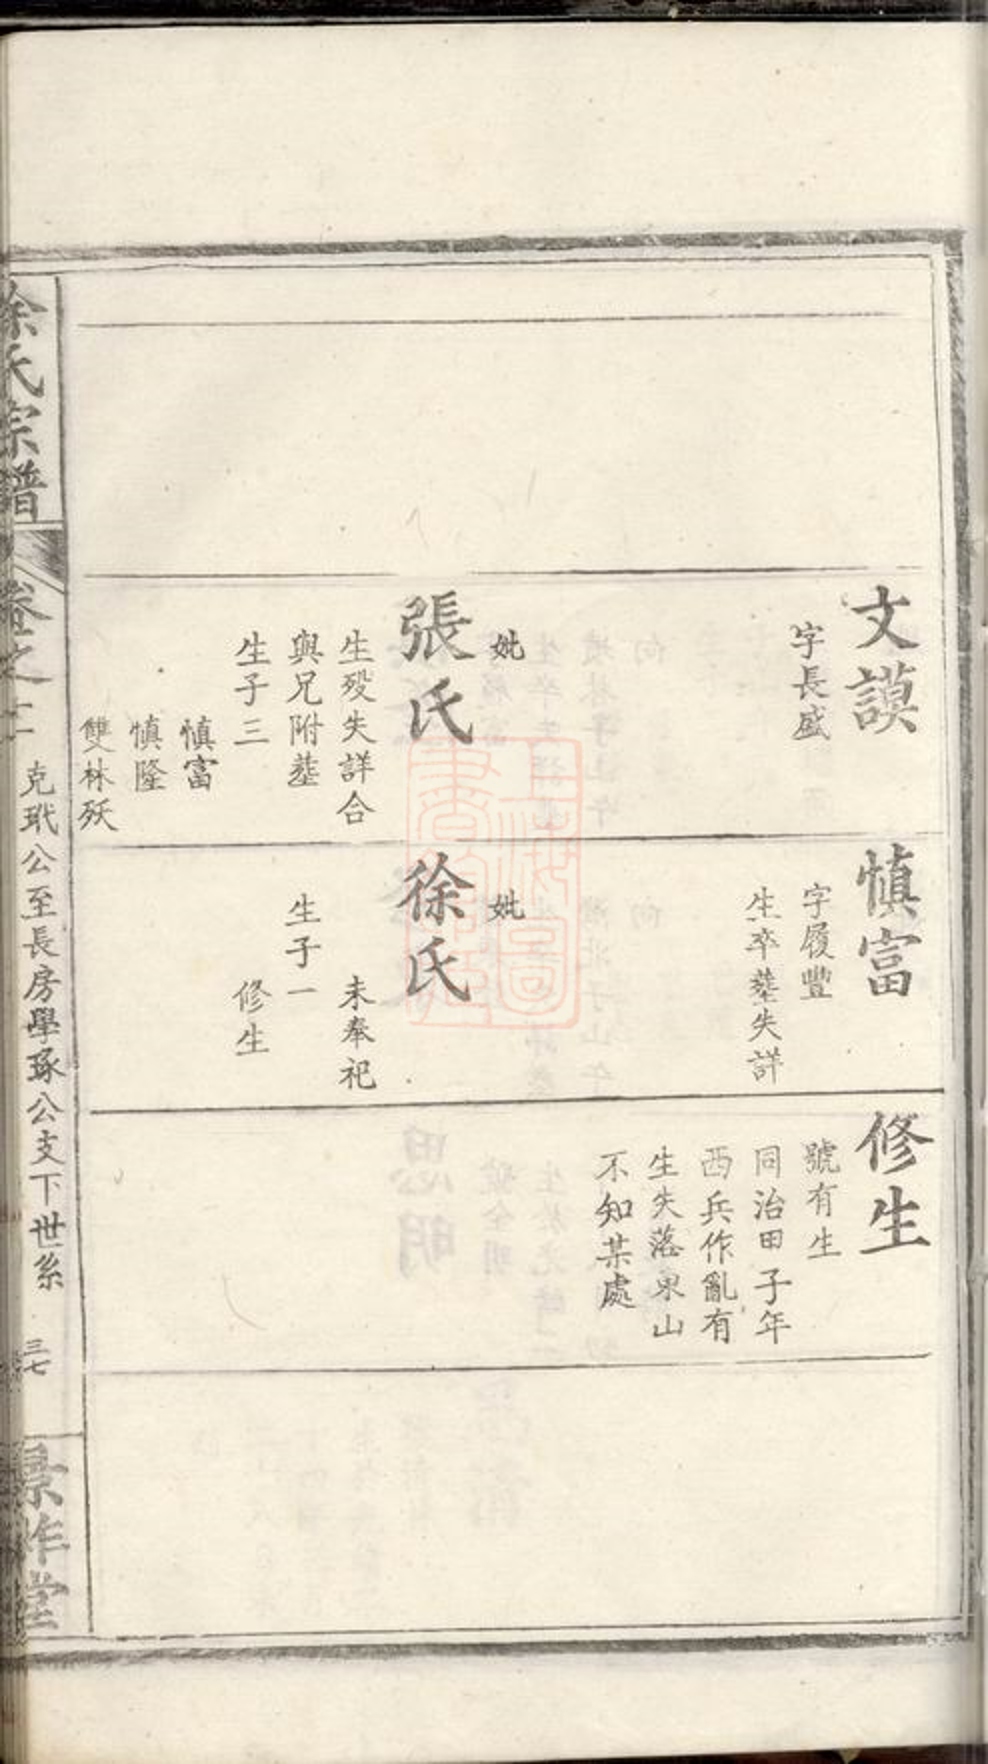 文謨
字長盛
妣
張氏
生殁失詳合
與兄附塟
生子三
慎富
慎隆
雙林殀
慎富
字履豐
生卒塟失詳
妣
徐氏
未奉祀
生子一
修生
修生
號有生
同治田子年
西兵作亂有
生失落東山
不知某處
徐氏宗譜
卷之十二
克玳公至長房學琢公支下世系
三七
景祚堂
上海圖書館藏